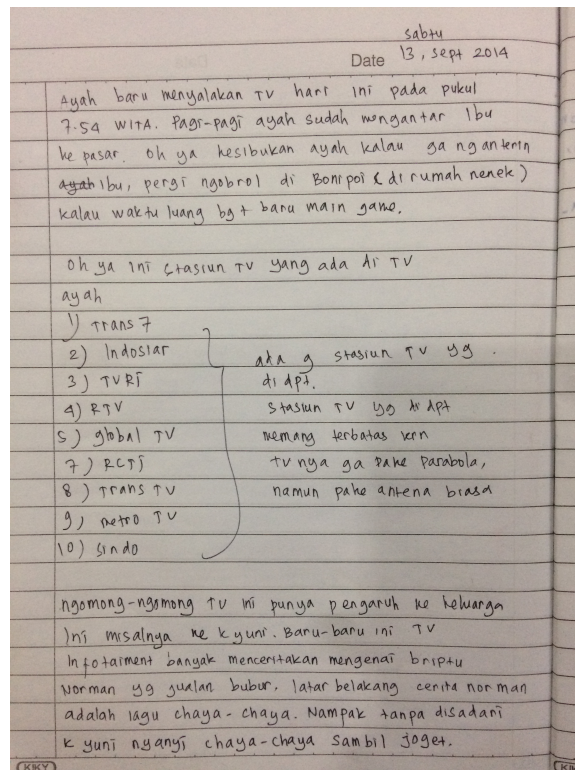 sabtu
Date 13, sept 2014
Ayah baru menyalakan TV hari ini pada pukul
7.54 WITA. Pagi-pagi ayah sudah mengantar Ibu
ke pasar. Oh ya kesibukan ayah kalau ga nganterin
ayah Ibu, pergi ngobrol di Bonipoi (di rumah nenek)
kalau waktu luang bgt baru main game.
Oh ya ini stasiun TV yang ada di TV
ayah
1) Trans 7
2) Indosiar
3) TVRI
4) RTV
5) global TV
7) RCTI
8) Trans TV
9) metro TV
10) sindo
ada 9 stasiun TV yg
di dpt.
Stasiun TV yg di dpt
memang terbatas krn
tv nya ga pake parabola,
namun pake antena biasa
ngomong-ngomong TV ini punya pengaruh ke keluarga
Ini misalnya ke k yuni. Baru-baru ini TV
Infotaiment banyak menceritakan mengenai briptu
Norman yg jualan bubur. latar belakang cerita norman
adalah lagu chaya-chaya. Nampak tanpa disadari
k yuni nyanyi chaya-chaya sambil joget.
KIKY